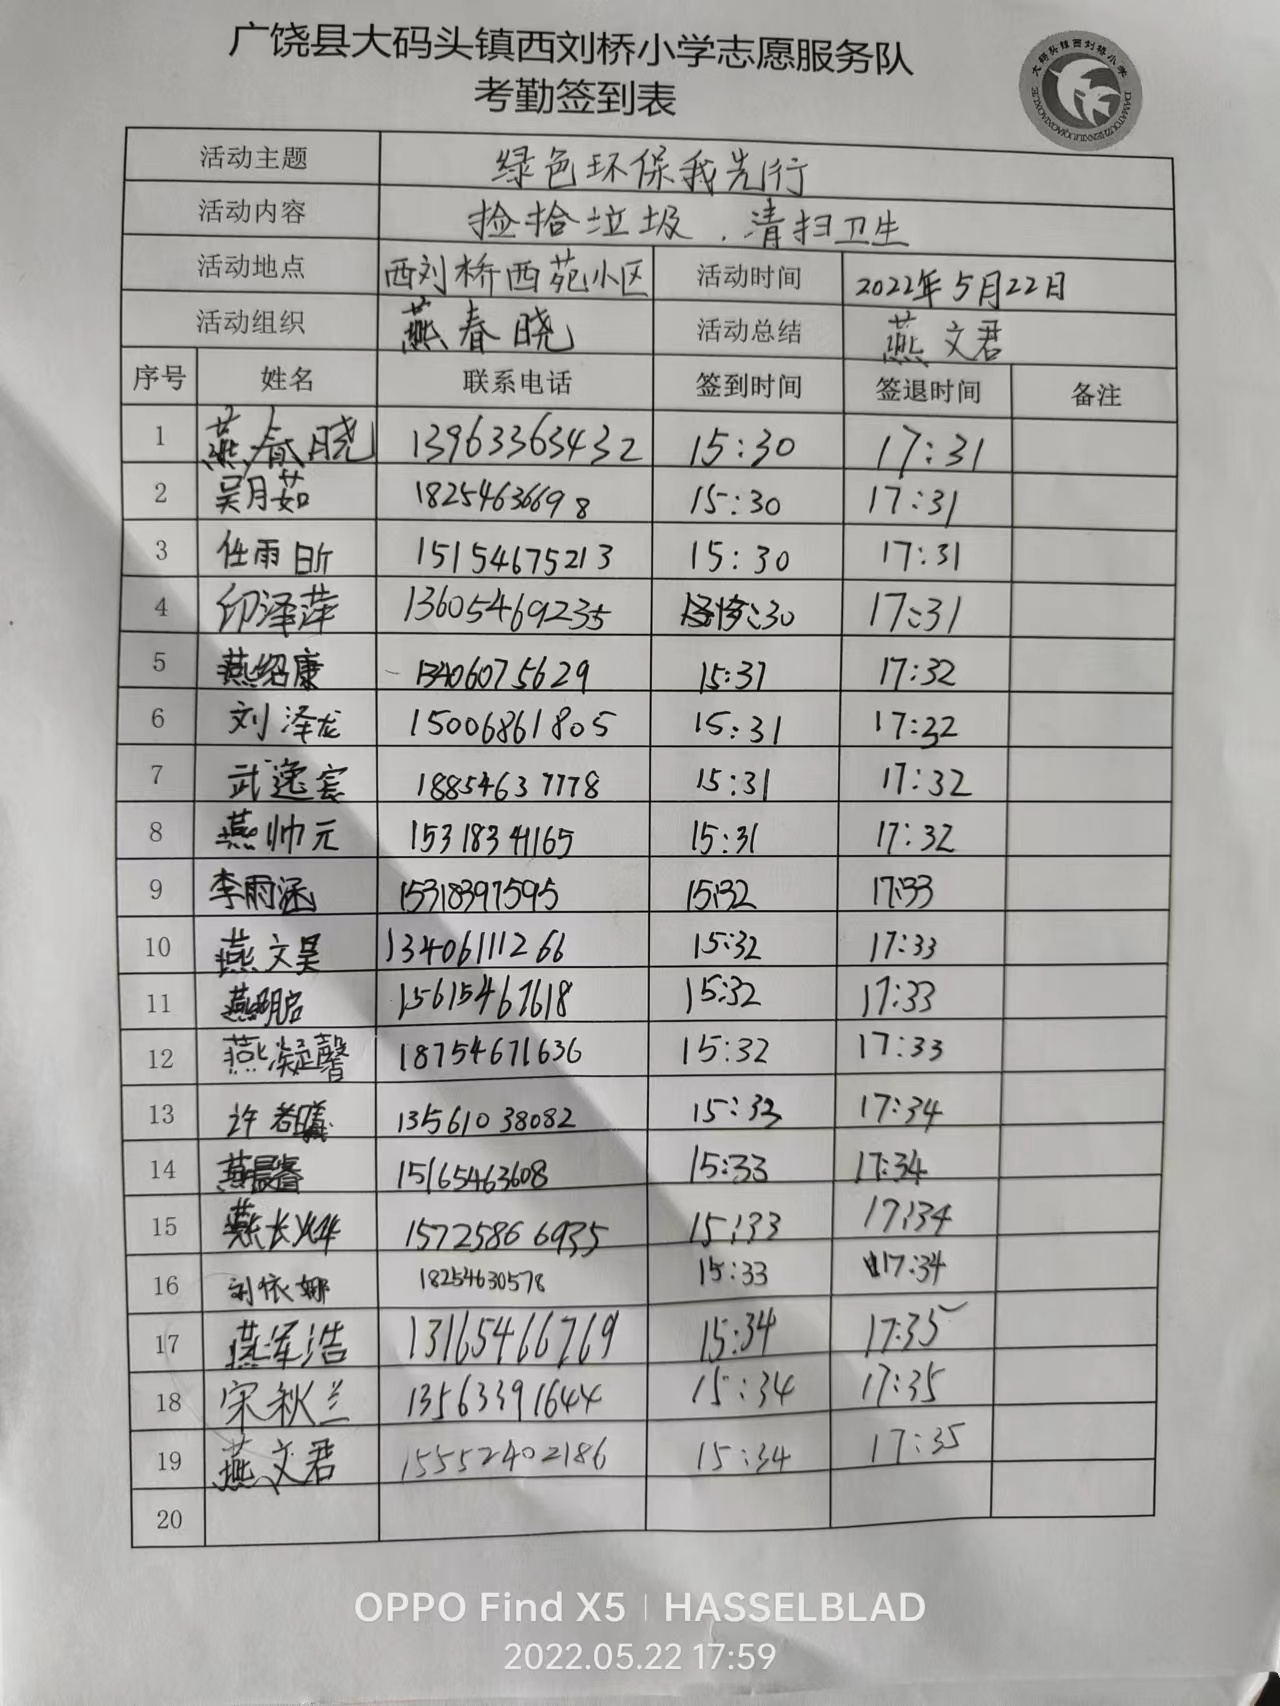 广饶县大码头镇西刘桥小学志愿服务队
考勤签到表
大码头镇西刘桥小学
活动主题 绿色环保我先行
活动内容 捡拾垃圾，清扫卫生
活动地点 西刘桥西苑小区 活动时间 2022年5月22日
活动组织 燕春晓 活动总结 燕文君
序号 姓名 联系电话 签到时间 签退时间 备注
1 燕春晓 13963363432 15:30 17:31
2 吴月茹 18254636698 15:30 17:31
3 任雨昕 15154675213 15:30 17:31
4 印泽萍 13605469235 :30 17:31
5 燕绍康 13406075629 15:31 17:32
6 刘泽龙 15006861805 15:31 17:32
7 武逸宸 18854637778 15:31 17:32
8 燕帅元 15318341165 15:31 17:32
9 李雨涵 15318397595 15:32 17:33
10 燕文昊 13406111266 15:32 17:33
11 燕明启 15615467618 15:32 17:33
12 燕凝馨 18754671636 15:32 17:33
13 许 13561038082 15:33 17:34
14 燕晨睿 15165463608 15:33 17:34
15 燕长烨 15725866935 15:33 17:34
16 刘依娜 18254630578 15:33 17:34
17 燕泽浩 13165466769 15:34 17:35
18 宋秋兰 13563391644 15:34 17:35
19 燕文君 15552402186 15:34 17:35
20
OPPO Find X5 | HASSELBLAD
2022.05.22 17:59